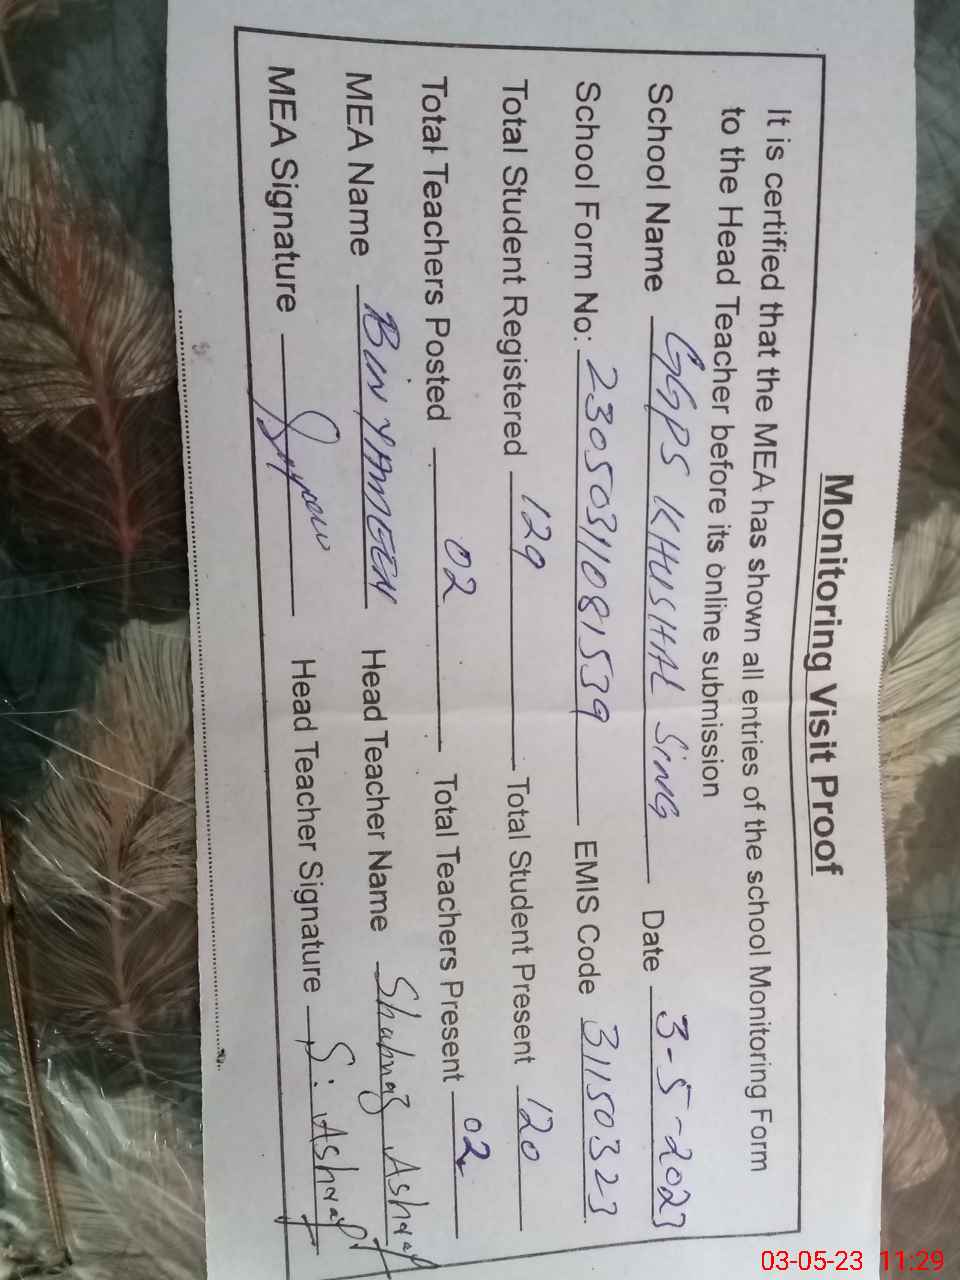 Monitoring Visit Proof
It is certified that the MEA has shown all entries of the school Monitoring Form
to the Head Teacher before its online submission
School Name GGPS KHUSHAL SING Date 3-5-2023
School Form No: 23050311081539 EMIS Code 31150323
Total Student Registered 129 Total Student Present 120
Total Teachers Posted 02 Total Teachers Present 02
MEA Name BINYAMEEN Head Teacher Name Shahnaz Ashraf
MEA Signature Head Teacher Signature S. Ashraf
03-05-23 11:29